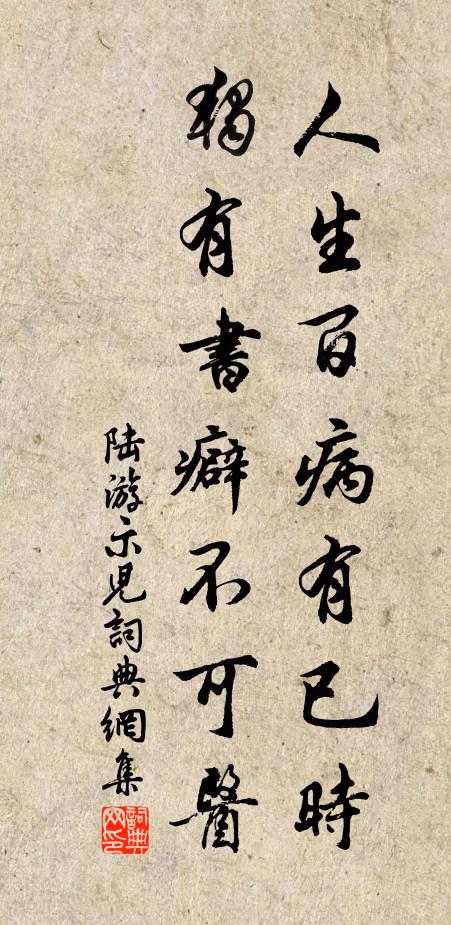 人生百病有已時
獨有書癖不可醫
陸游示兒詞典網集
詞典網印